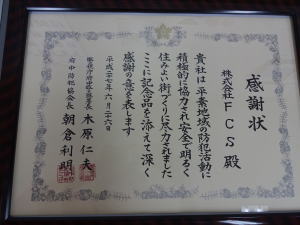 感謝状
株式会社FCS殿
貴社は平素地域の防犯活動に
積極的に協力され安全で明るく
住みよい街づくりに尽力されました
ここに記念品を添えて深く
感謝の意を表します
平成二十七年六月二十六日
警視庁府中警察署長 木原仁夫
府中防犯協会長 朝倉利明